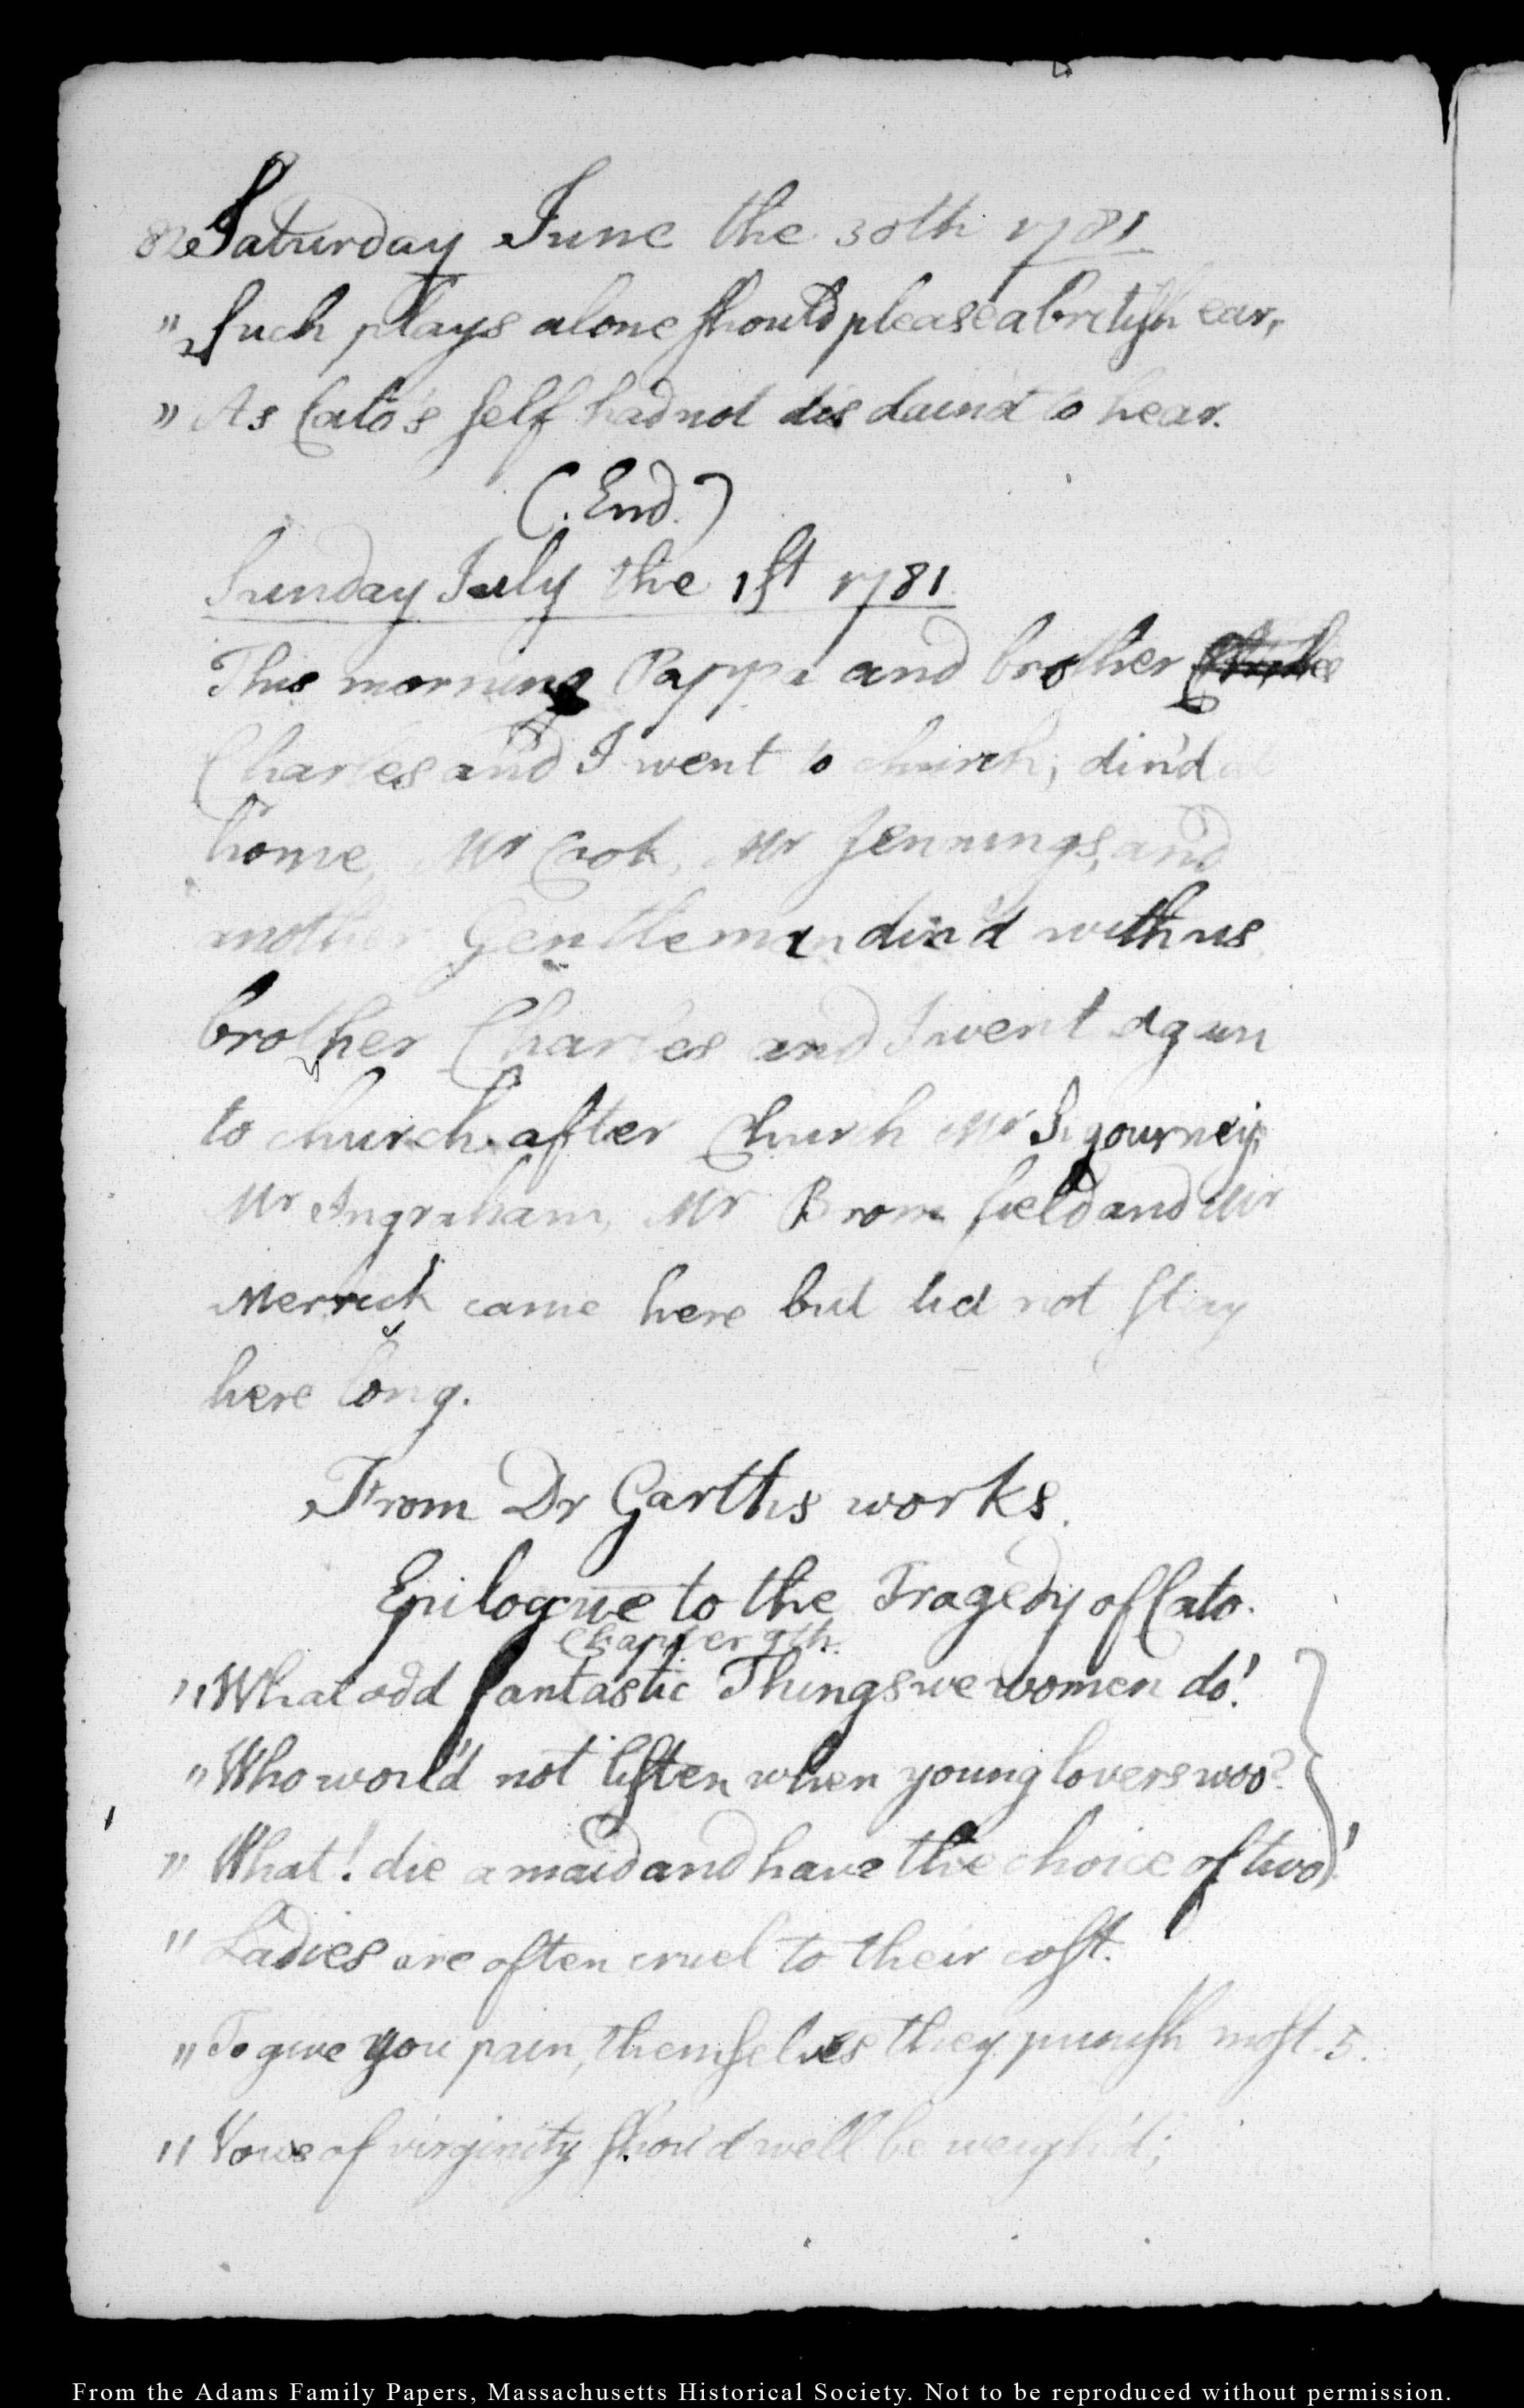 82 Saturday June the 30th 1781
" Such plays alone should please a british ear,
" As Cato's self had not disdain'd to hear.
(. End.)
Sunday July the 1st 1781
This morning Pappa and brother
Charles and I went to church; din'd at
home, Mr Cook, Mr Jennings, and
another Gentleman din'd with us
brother Charles and I went again
to church. after Church Mr Sigourney,
Mr Ingraham, Mr Bromfield and Mr
Merrick came here but did not stay
here long.
From Dr Garths works.
Epilogue to the Tragedy of Cato.
Chapter 9th.
" What odd fantastic Things we women do!
" Who would not listen when young lovers woo?
" What! die a maid and have the choice of two!
" Ladies are often cruel to their cost.
" To give you pain, themselves they punish most. 5.
" Vows of virginity shou'd well be weigh'd;
From the Adams Family Papers, Massachusetts Historical Society. Not to be reproduced without permission.